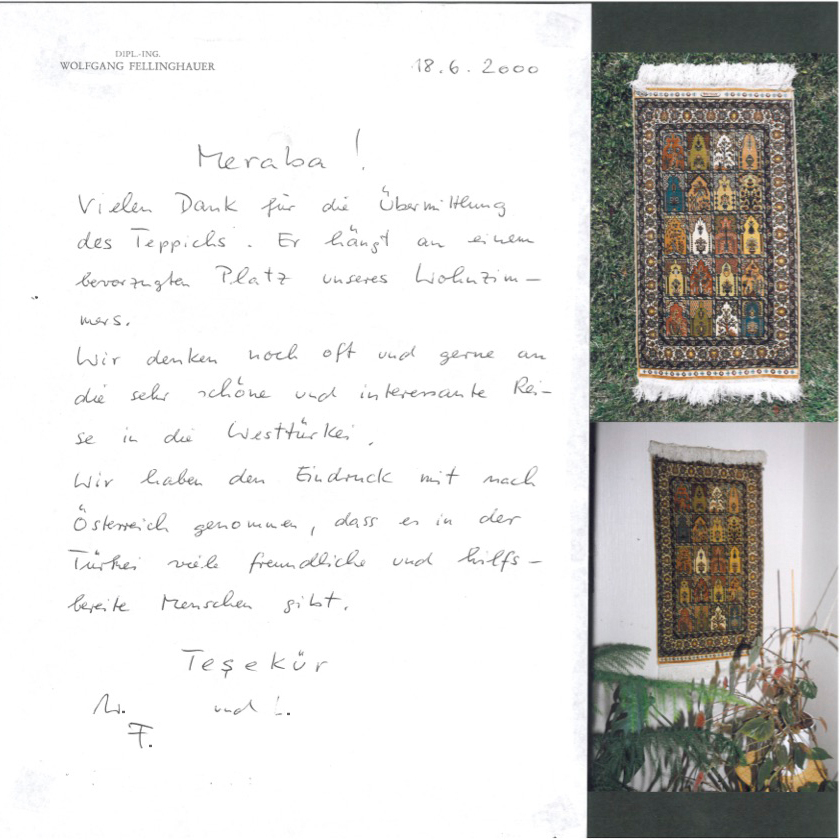 DIPL.-ING.
WOLFGANG FELLINGHAUER
18.6.2000
Meraba!
Vielen Dank für die Übermittlung
des Teppichs. Er hängt an einem
bevorzugten Platz unseres Wohnzim-
mers.
Wir denken noch oft und gerne an
die sehr schöne und interessante Rei-
se in die Westtürkei.
Wir haben den Eindruck mit nach
Österreich genommen, dass es in der
Türkei viele freundliche und hilfs-
bereite Menschen gibt.
Teşekür
W. und L.
F.